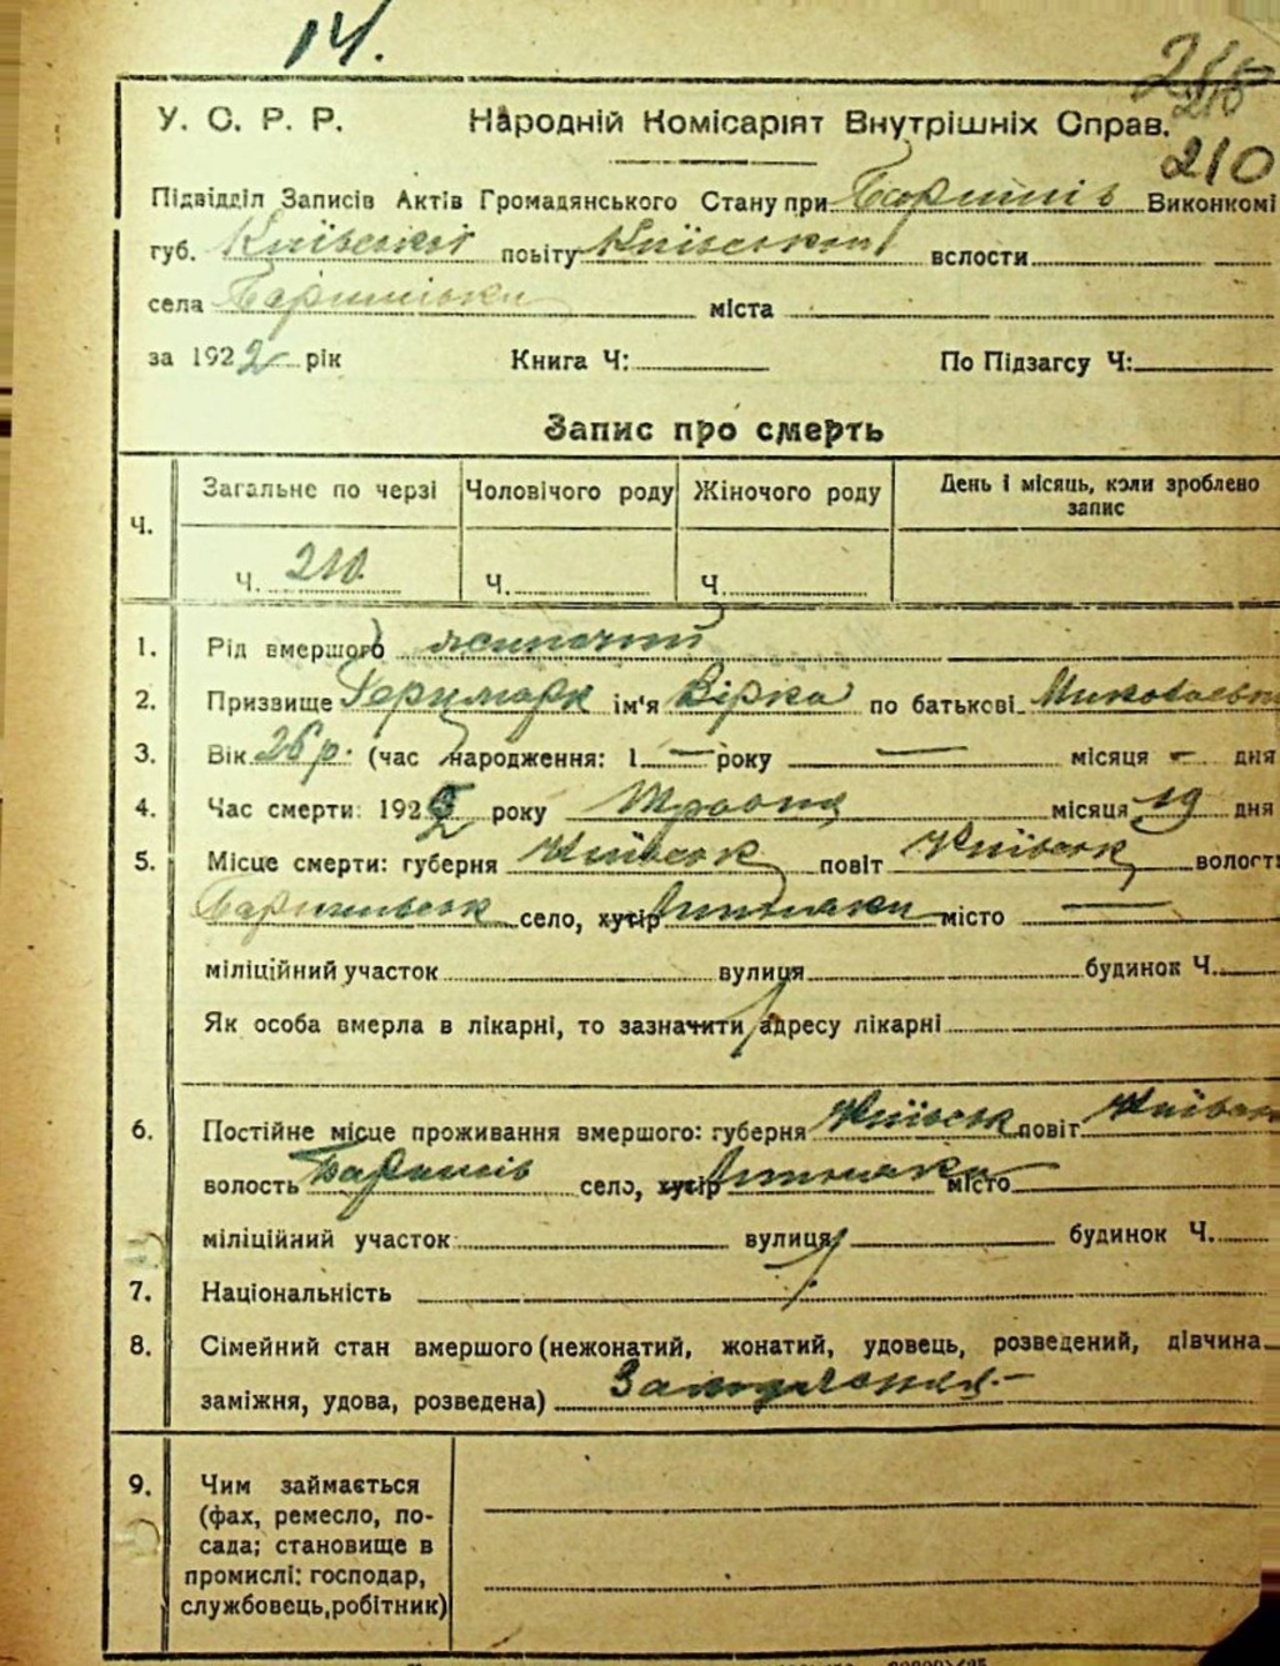 14.
215
210
У. С. Р. Р. Народній Комісаріят Внутрішніх Справ.
210
Підвідділ Записів Актів Громадянського Стану при Баришів Виконкомі
губ. Київської повіту Київського вслости
села Баришівки міста
за 1922 рік Книга Ч: По Підзагсу Ч:
Запис про смерть
Загальне по черзі Чоловічого роду Жіночого роду День і місяць, коли зроблено запис
Ч.
Ч. 210. Ч. Ч.
1. Рід вмершого жиночий
2. Призвище ім'я Вірка по батькові Миколаевна
3. Вік 26 р. (час народження: 1 — року — місяця — дня
4. Час смерти: 1922 року Травня місяця 19 дня
5. Місце смерти: губерня Київськ повіт Київськ волость
Баришевськ село, хутір місто —
міліційний участок вулиця будинок Ч.
Як особа вмерла в лікарні, то зазначити адресу лікарні
6. Постійне місце проживання вмершого: губерня Київськ повіт Київськ
волость Баришів село, хутір місто
міліційний участок вулиця будинок Ч.
7. Національність
8. Сімейний стан вмершого (нежонатий, жонатий, удовець, розведений, дівчина
заміжня, удова, розведена)
9. Чим займається
(фах, ремесло, по-
сада; становище в
промислі: господар,
службовець, робітник)